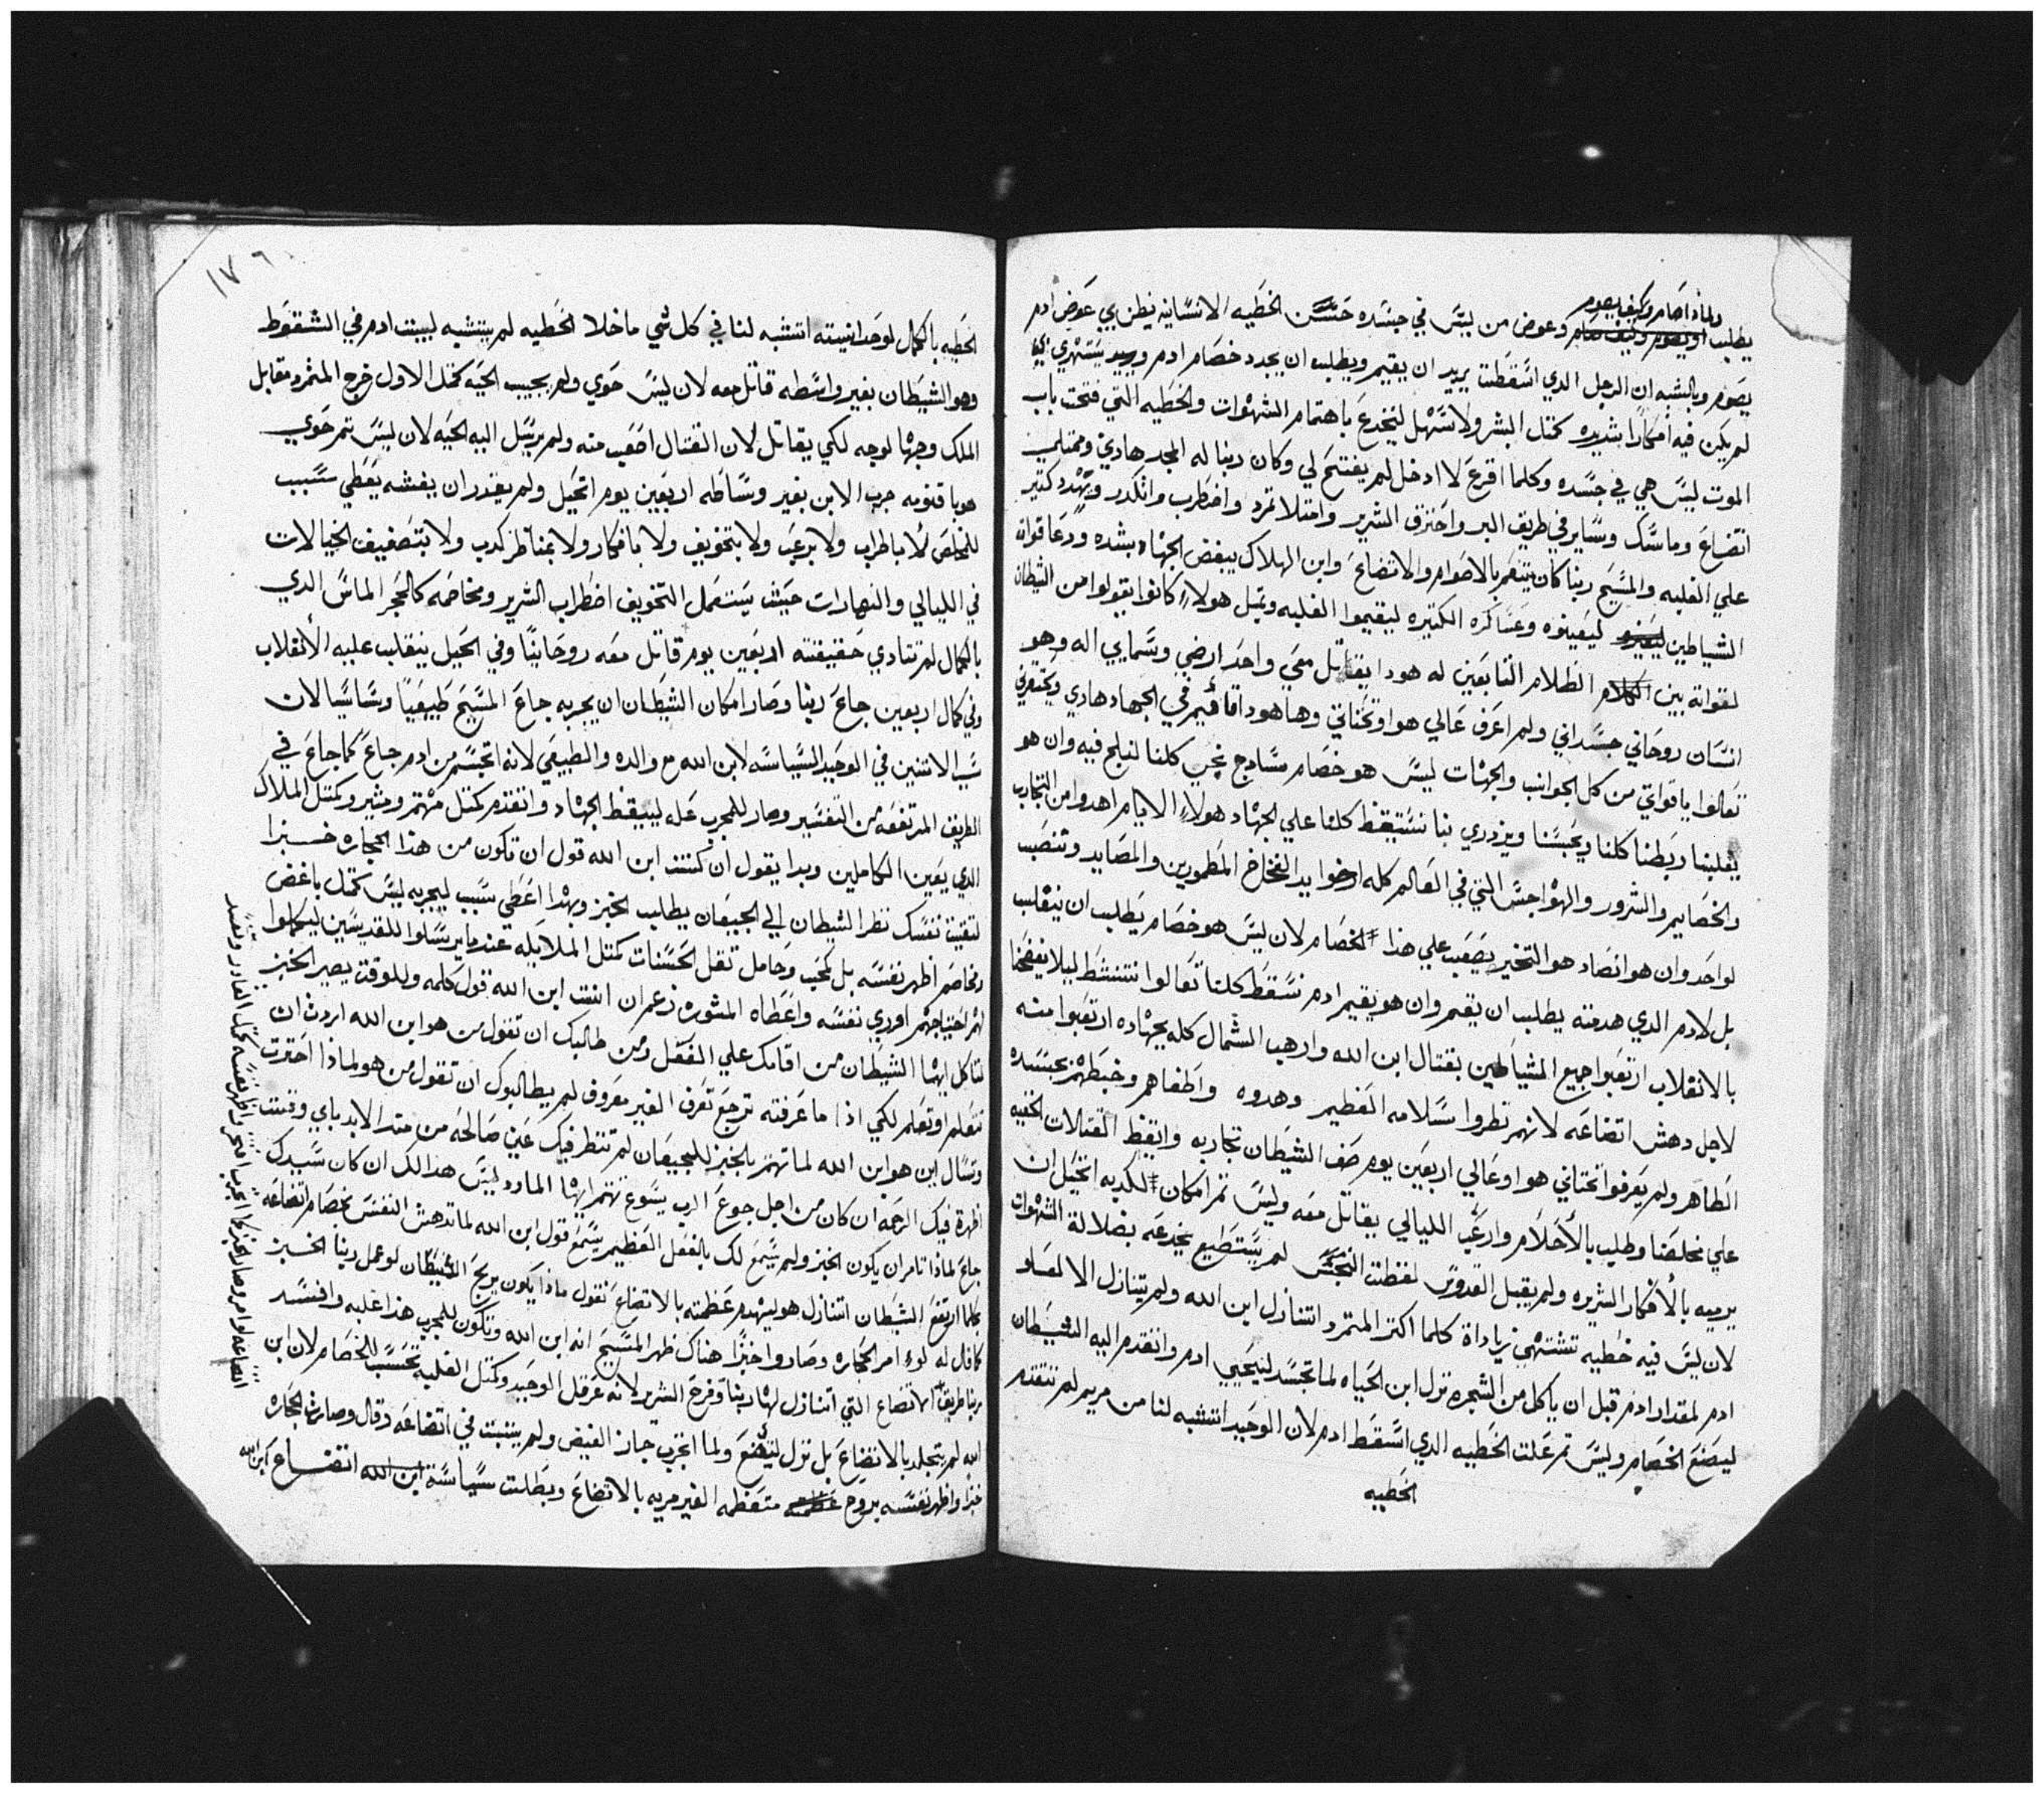 ولماذا صام وكيف يصوم
يطلب او يصوم وكيف صام وعوض من ليس في جسده حسن الخطيه الانسانيه يظن بي عوض ادم
يصوم وبالشبه ان الرجل الدي اسقطت يريد ان يقيم ويطلب ان يجدد خصام ادم ويريد يستهزي بي
لم يكن فيه افكارا شديده كمتل البشر ولا سهل لينخدع باهتمام الشهوات والخطيه التي فتحت باب
الموت ليس هي في جسده وكلما اقرع لا ادخل لم يفتح لي وكان ربنا له المجد هادي وممتلي
اتضاع وماسك وساير في طريق البر واحترق الشرير وامتلا تمرد واضطرب وانكدر وتهدد كتير
علي الغلبه والمسيح ربنا كان يتنعم بالاصوام والاتضاع وابن الهلاك يبغض الجهاد بشده ودعا قواة
الشياطين ليعينوه وعساكره الكتيره ليقيموا الغلبه ومتل هولاء كانوا يقولوا من الشيطان
لقواته بين الظلام التابعين له هودا يقاتل معي واحد ارضي وسمايي اله وهو
انسان روحاني جسداني ولم اعرف عالي هو او تحتاني وها هودا قايم في الجهاد هادي ويحتقرني
تعالوا يا قواتي من كل الجوانب والجهات ليس هو خصام سادج يجب كلنا لنلج فيه وان هو
يغلبنا ربطنا كلنا ويحبسنا ويزدري بنا نستيقظ كلنا علي الجهاد هولاء الايام اهدوا من التجارب
والخصايم والشرور والهواجس التي في العالم كله ارخوا يد الفخاخ المطمورين والمصايد وتنصب
لواحد وان هو انصاد هو التخير يصعب علي هذا الخصام لان ليس هو خصام يطلب ان ينقلب
بل لادم الدي هدمته يطلب ان يقيم وان هو يقيم ادم نسقط كلنا تعالوا نتنشط ليلا يفضحنا
بالانقلاب ارتعبوا جميع الشياطين بقتال ابن الله وارهب الشمال كله بجهاده ارتعبوا منه
لاجل دهش اتضاعه لانهم نظروا سلامه العظيم وهدوه واطفاهم وخبطهم بجسده
الطاهر ولم يعرفوا تحتاني هو او عالي اربعين يوم صف الشيطان تجاربه وايقظ القتالات الخفيه
علي مخلصنا وطلب بالاحلام وارعب الليالي يقاتل معه وليس تم امكان لكدبه اتخيل ان
يرميه بالافكار الشريره ولم يقبل القدوس لفظت النجس لم يستطيع يخدعه بضلالة الشهوات
لان ليس فيه خطيه تشتهي زياداة كلما اكتر المتمرد اتنازل ابن الله ولم يتنازل الا لمساو
ادم لمقدار ادم قبل ان ياكل من الشجره نزل ابن الحياه لما تجسد ليحيي ادم واتقدم اليه الشيطان
ليصنع الخصام وليس تم عملت الخطيه الدي اسقط ادم لان الوحيد اتشبه لنا من مريم لم تتقدم
الخطيه
١٧٦
الخطيه بالكمال لوحدانيته اتشبه لنا في كل شي ما خلا الخطيه لم يتشبه لبيت ادم في السقوط
وهو الشيطان بغير واسطه قاتل معه لان ليس حوي ولم يجيب الحيه كمتل الاول خرج المتمرد مقابل
الملك وجها لوجه لكي يقاتل لان القتال اصعب منه ولم يرسل اليه الحيه لان ليس تم حوي
هو باقنومه جرب الابن بغير وساطه اربعين يوم اتحيل ولم يقدر ان يغشه يعطي سبب
للمخلص لا باطراب ولا برعب ولا بتخويف ولا بافكار ولا بمناظر كدب ولا بتصفيف الخيالات
في الليالي والنهارات حيث يستعمل التخويف اضطراب الشرير ومخاصمه كالحجر الماس الدي
بالكمال لم تنادي حقيقته اربعين يوم قاتل معه روحانيا وفي الحيل ينقلب عليه الانقلاب
وفي كمال اربعين جاع ربنا وصار امكان الشيطان ان يجربه جاع المسيح طبيعيا وسياسيا لان
شي الاتنين في الوحيد السياسه لابن الله مع والده والطبيعي لانه اتجسم من ادم جاع كما جاع في
الطريق المرتفعه من التفسير وصار للمجرب عله ليستيقظ الجهاد واتقدم كمتل مهتم ومشير وكمتل الملاك
الدي يعين الكاملين وبدا يقول ان كنت ابن الله قول ان تكون من هذا الحجاره خبزا
لتقيت نفسك نظر الشيطان الي الجيعان يطلب الخبز وبهدا اعطي سبب ليجربه ليس كمتل باغض
ومخاصم اظهر نفسه بل كمحب وحامل تقل الحسنات كمتل الملايكه عندما يرسلوا للقديسين ليكملوا
لهم احتياجهم اوري نفسه واعطاه المشوره زعم ان انت ابن الله قول كلمه وللوقت يصير الخبز
لتاكل ايها الشيطان من اقامك علي الفعل ومن طالبك ان تقول من هو ابن الله اردت ان
تتعلم او تعلم لكي اذا ما عرفته ترجع تعرف الغير معروف لم يطالبوك ان تقول من هو لماذا احترت
وتسال اين هو ابن الله لما تهتم بالخبز للجيعان لم تنظر فيك عين صالحه من متد الابد باي وقت
اظهرة فيك الرحمه ان كان من اجل جوع الرب يسوع تهتم ايها المارد ليس هدا لك ان كان سيدك
جاع لماذا تامر ان يكون الخبز ولم يسمع لك بالفعل العظيم يسمع قول ابن الله لما تدهش النفس بخصام اتضاعه
كلما ارتفع الشيطان اتنازل هو ليهدم عظمته بالاتضاع نقول ماذا يكون يربح الشيطان لو عمل ربنا الخبز
كما قال له لو امر الحجاره وصاروا خبزا هناك ظهر المسيح انه ابن الله وتكون للمجرب هذا غلبه وافسد
ربنا طريق الاتضاع التي اتنازل لها ربنا وفرح الشرير لانه عرقل الوحيد وكمتل الغلبه تحسب للخصام لان ابن
الله لم يتجلد بالاتضاع بل نزل ليتضع ولما اتجرب جاز الفيض ولم يتبت في اتضاعه وقال وصارت الحجاره
خبزا واظهر نفسه بروح عظمة متعظمه الغير مريه بالاتضاع وبطلت سياسة ابن الله اتضاع ابن الله